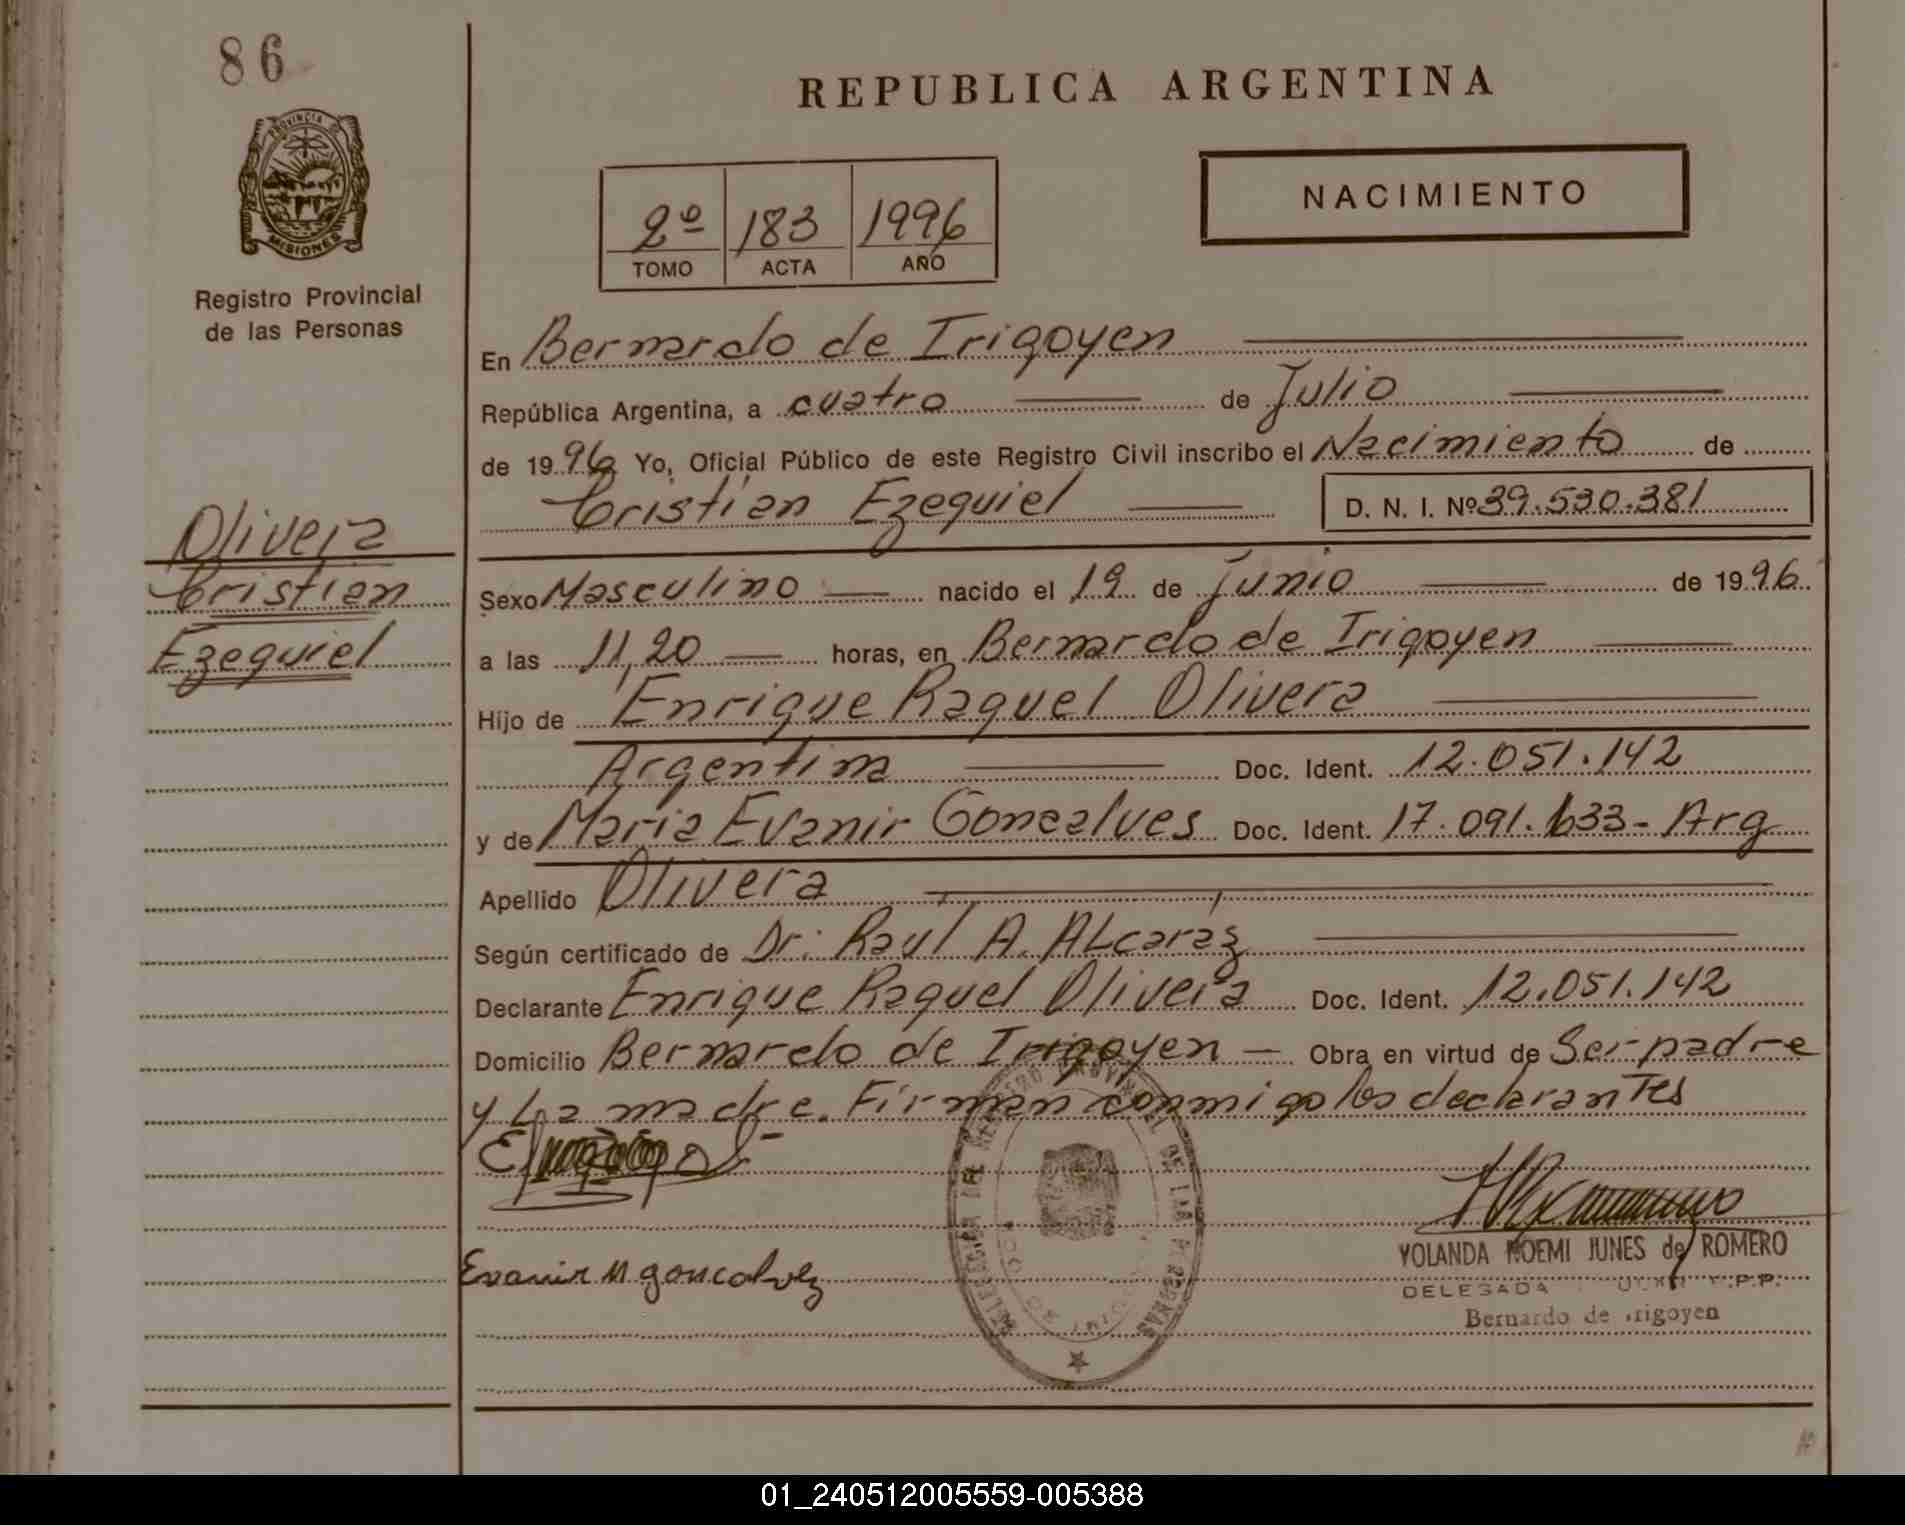 86
REPUBLICA ARGENTINA
PROVINCIA DE
MISIONES
Registro Provincial
de las Personas
2º 183 1996
TOMO ACTA AÑO
NACIMIENTO
En Bernardo de Irigoyen
República Argentina, a cuatro de Julio
de 1996 Yo, Oficial Público de este Registro Civil inscribo el Nacimiento de
Cristian Ezequiel D. N. I. Nº 39.530.381
Olivera
Cristian
Ezequiel
Sexo Masculino nacido el 19 de Junio de 1996
a las 11,20 horas, en Bernardo de Irigoyen
Hijo de Enrique Raquel Olivera
Argentina Doc. Ident. 12.051.142
y de Maria Evanir Goncalves Doc. Ident. 17.091.633 - Arg
Apellido Olivera
Según certificado de Dr: Raúl A. ALcaráz
Declarante Enrique Raquel Olivera Doc. Ident. 12.051.142
Domicilio Bernardo de Irigoyen - Obra en virtud de Ser padre
y La madre. Firman conmigo los declarantes
Evanir M goncalvez
YOLANDA NOEMI JUNES de ROMERO
DELEGADA
Bernardo de Irigoyen
DE LAS PERSONAS
01_240512005559-005388